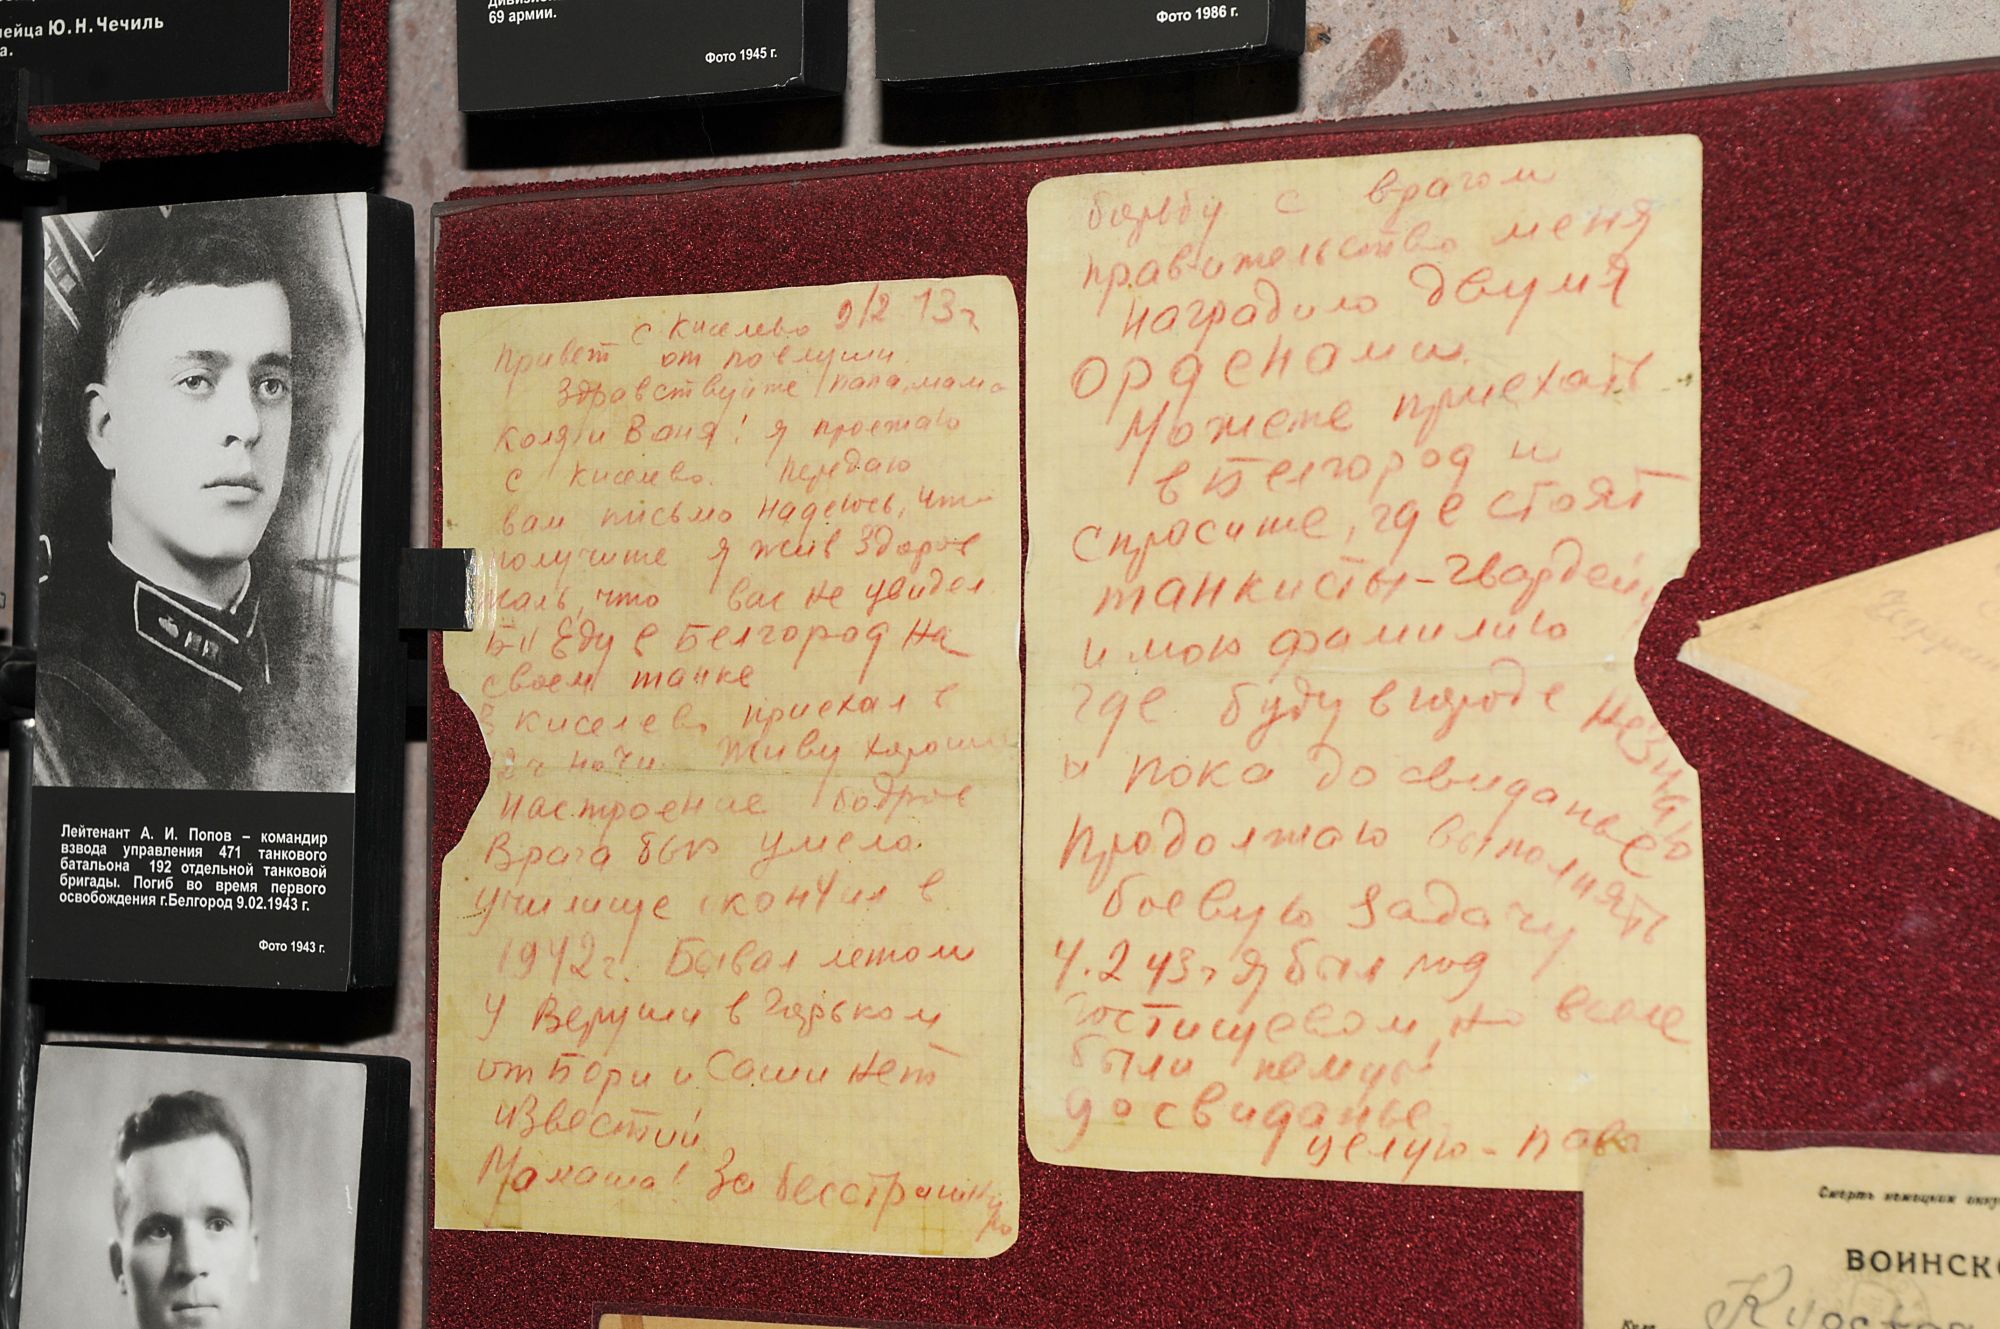 лейца Ю.Н.Чечиль
а.
69 армии.
Фото 1945 г.
Фото 1986 г.
Лейтенант А. И. Попов – командир
взвода управления 471 танкового
батальона 192 отдельной танковой
бригады. Погиб во время первого
освобождения г.Белгород 9.02.1943 г.
Фото 1943 г.
с Киселево 9/2 43 г
Привет от Павлуши.
Здравствуйте папа, мама
Коля и Ваня! Я проезжаю
с Киселево. Передаю
вам письмо надеюсь, что
получите я жив здоров
жаль, что вас не увидел.
Еду в Белгород на
своем танке
В Киселево приехал в
12 ч ночи. Живу хорошо
настроение бодрое
Врага бью умело.
училище окончил в
1942 г. Бывал летом
у Веруши в Горьком
от Бори и Саши нет
известий
Мамаша! За бесстрашную
борьбу с врагом
правительство меня
наградило двумя
орденами.
Можете приехать
в Белгород и
спросите, где стоят
танкисты-гвардейцы
и мою фамилию
где буду в городе не знаю
и пока до свиданье
Продолжаю выполнять
боевую задачу
4.2 43 г я был под
Гостищевом, но всюе
были немцы
до свиданье
целую - Пава
Смерть немецким
ВОИНСК